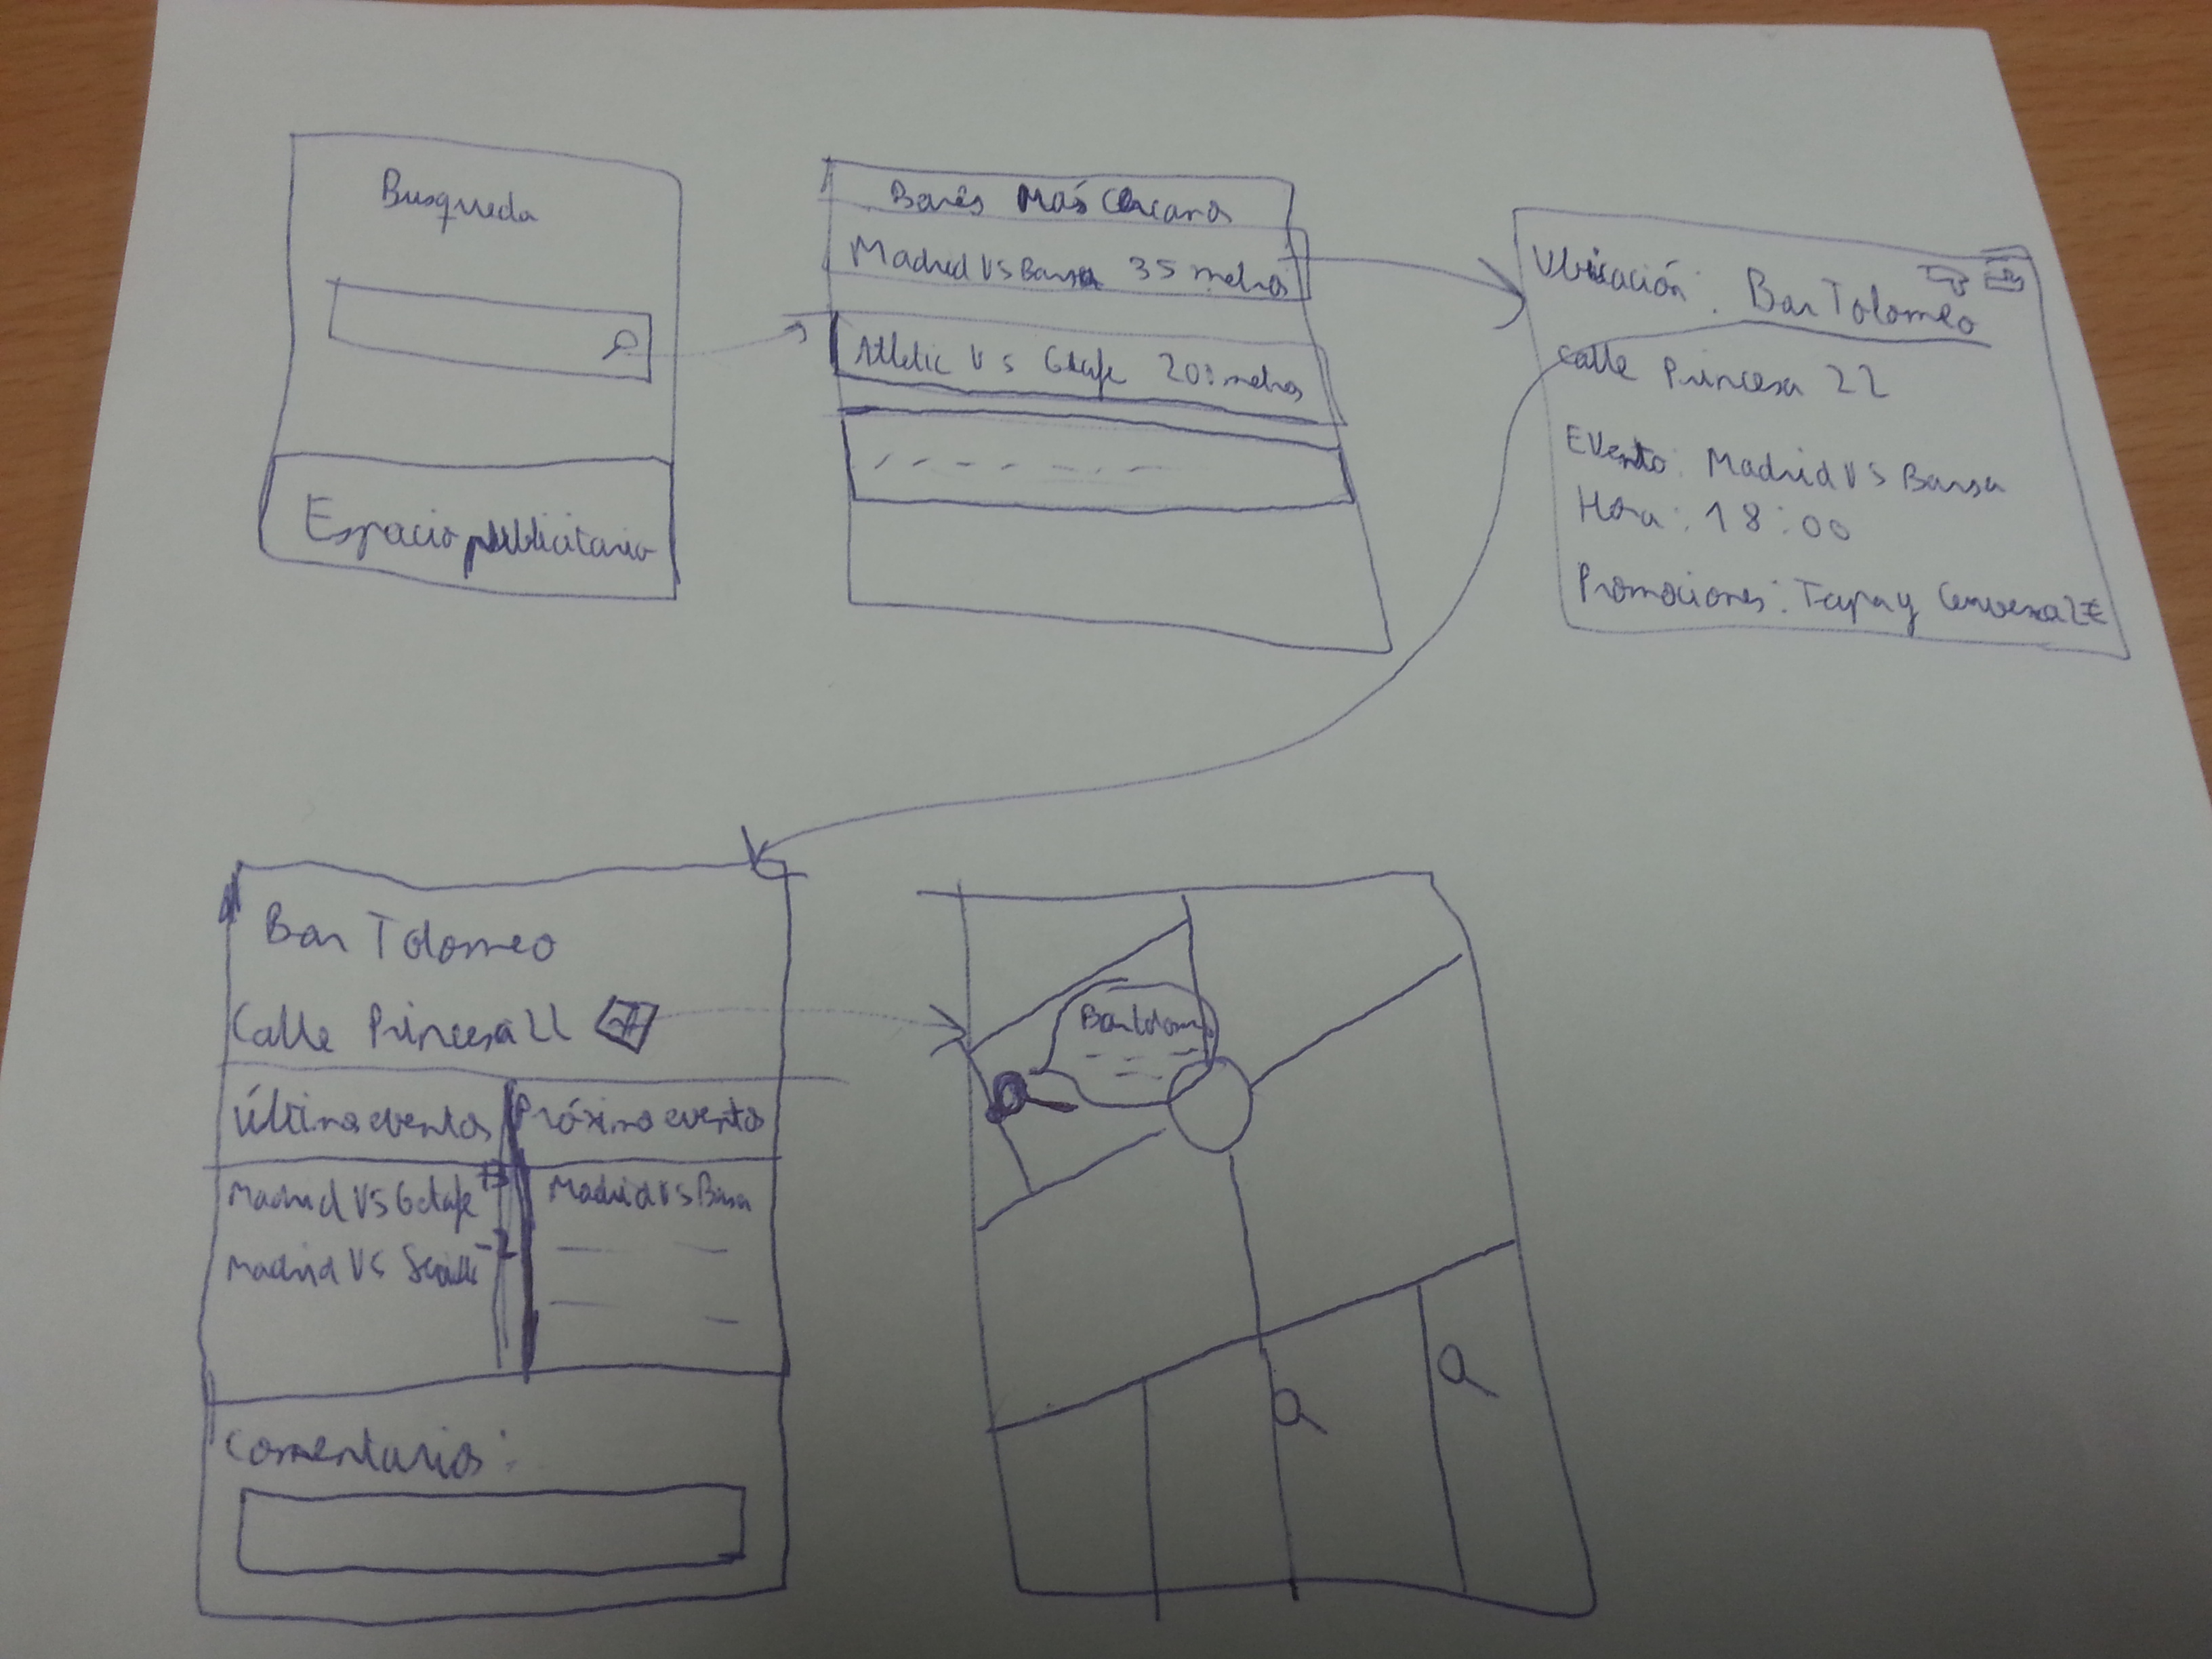 Busqueda
Espacio publicitario
Bares Más Cercanos
Madrid VS Barsa 35 metros
Athletic VS Getafe 200 metros
Ubicación: Bar Tolomeo
Calle Princesa 22
Evento: Madrid VS Barsa
Hora: 18:00
Promociones: Tapa y Cerveza 2€
Bar Tolomeo
Calle Princesa 22
Últimos eventos
Próximos eventos
Madrid VS Getafe +3
Madrid VS Barsa
Madrid VS Sevilla -2
Comentarios:
Bar Tolomeo